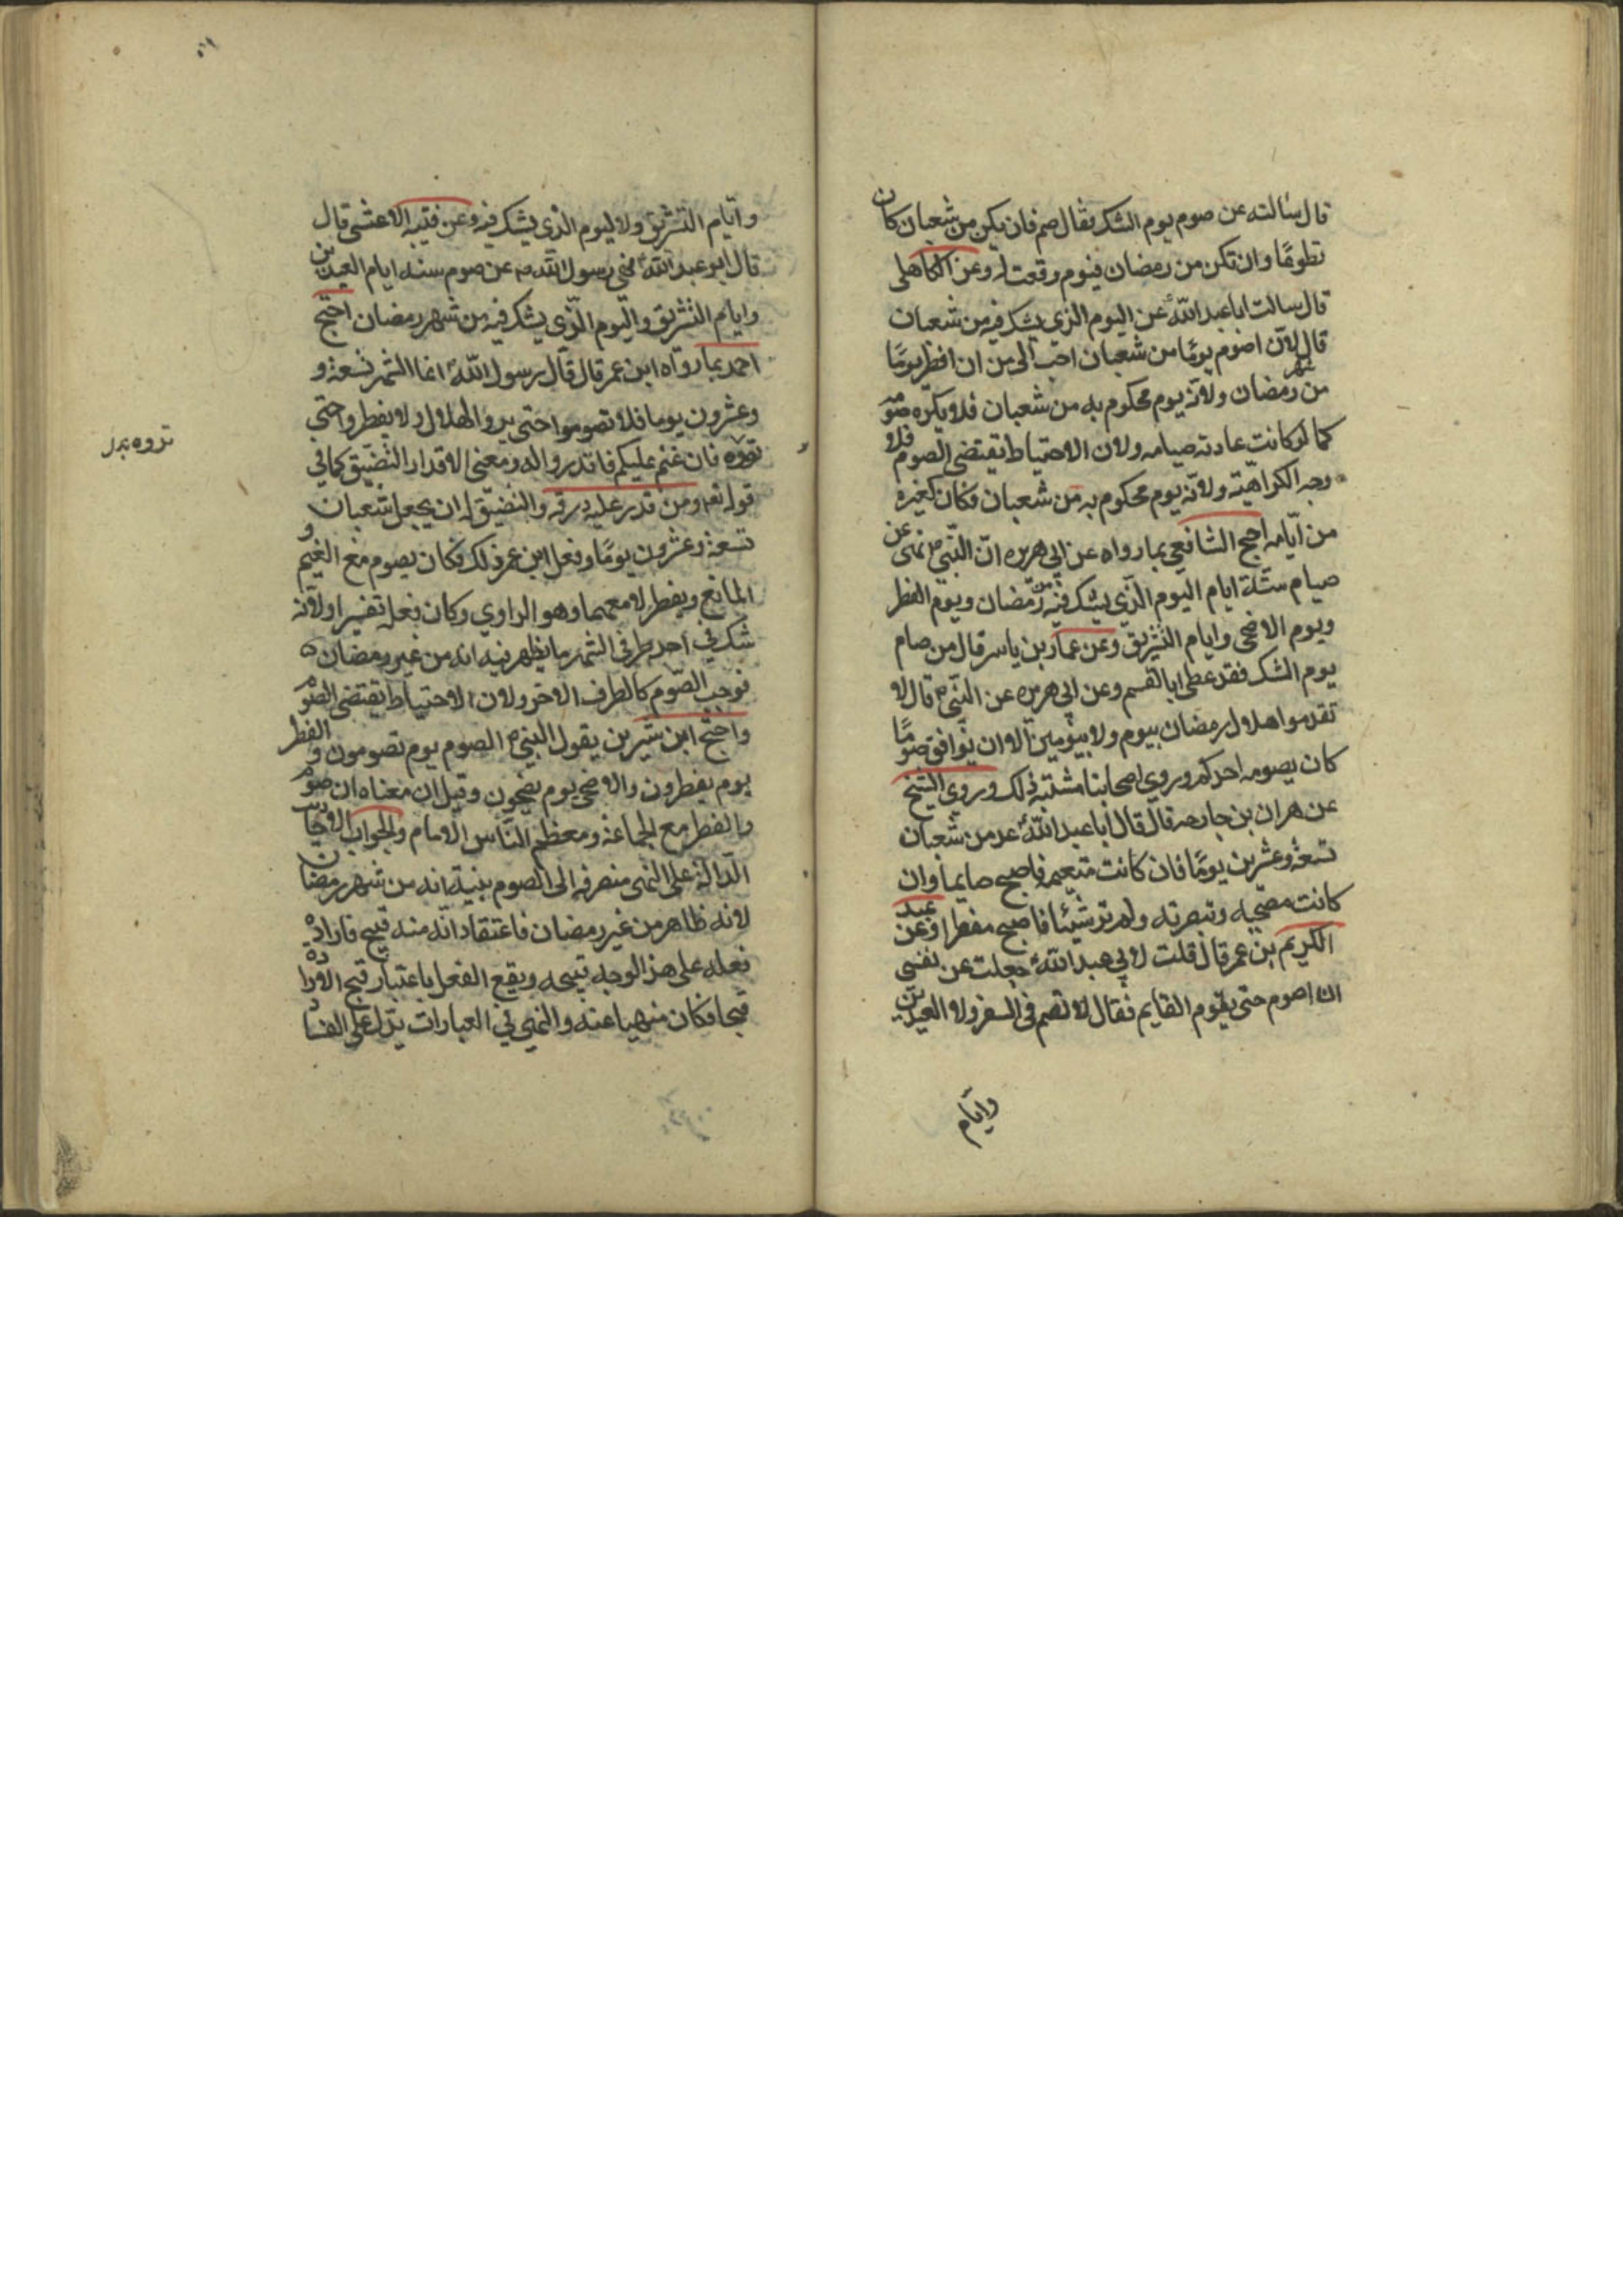 قال سالته عن صوم يوم الشك فقال صم فان يكن من شعبان كان
تطوعًا وان تكن من رمضان فيوم وفقت له وعن الكاهلى
قال سالت ابا عبد الله ع عن اليوم الذي يشك فيه من شعبان
قال لان اصوم يومًا من شعبان احب الى من ان افطر يومًا
من شهر رمضان ولانه يوم محكوم به من شعبان فلا يكره صومه
كما لو كانت عادته صيامه ولان الاحتياط يقتضى الصوم فلا
وجه الكراهيته ولانه يوم محكوم به من شعبان فكان كغيره
من ايامه احتج الشافعي بما رواه عن ابي هريره ان النبي ص نهى عن
صيام ستة ايام اليوم الذي يشك فيه من رمضان ويوم الفطر
ويوم الاضحى وايام التشريق وعن عمار بن ياسر قال من صام
يوم الشك فقد عصى ابا القسم وعن ابي هريره عن النبي ص قال لا
تقدموا هلال رمضان بيوم ولا بيومين الا ان يوافق صومًا
كان يصومه احدكم وروي اصحابنا مشتبه ذلك وروى الشيخ
عن هران بن جارحه قال قال ابا عبد الله ع عد من شعبان
تسعة وعشرين يومًا فان كانت متغيمه فاصبح صايما وان
كانت مصحيه وتبصرته ولم تر شيئا فاصبح مفطرا وعن عبد
الكريم بن عمر قال قلت لابي عبد الله ع جعلت عن نفسى
ان اصوم حتى يقوم القايم فقال لا تصم فى السفر ولا العيدين
وايام
وايام التشريق ولا ليوم الذي يشك فيه وعن قتيبه الاعشى قال
قال ابو عبد الله ع نهى رسول الله ص عن صوم سته ايام العيدين
وايام التشريق واليوم الذي يشك فيه من شهر رمضان احتج
احمد بما رواه ابن عمر قال قال رسول الله ص انما الشهر تسعة و
وعشرون يوما فلا تصوموا حتى يروا لهلال ولا يفطروا حتى
تروه فان غم عليكم فاقدروا له ومعنى الاقدار التضييق كما في
قوله تعه ومن قدر عليه رزقه والتضييق له ان يجعل شعبان
تسعة وعشرون يومًا وفعل ابن عمر ذلك فكان يصوم مع الغيم و
المانع ويفطر لا معهما وهو الراوي وكان فعله تفسيرا ولانه
شك في احد طرفى الشهر ما يظهر فيه انه من غير رمضان
فوجب الصوم كالطرف الاخر ولان الاحتياط يقتضى الصوم
واحتج ابن سيرين بقول النبي ص الصوم يوم تصومون والفطر
يوم يفطرون والاضحى يوم يضحون وقيل ان معناه ان صوم
والفطر مع الجماعة ومعظم الناس الامام والجواب الاحاديث
الدالة على النهى منصرفه الى الصوم بنية انه من شهر رمضان
لانه ظاهر من غير رمضان فاعتقاد انه منه قبيح فاراده
فعله على هذ الوجه قبيحه ويقع الفعل باعتبار قبح الاراده
قبيحا فكان منهيا عنه والنهى في العبارات يدل على الفساد
تروه بدل